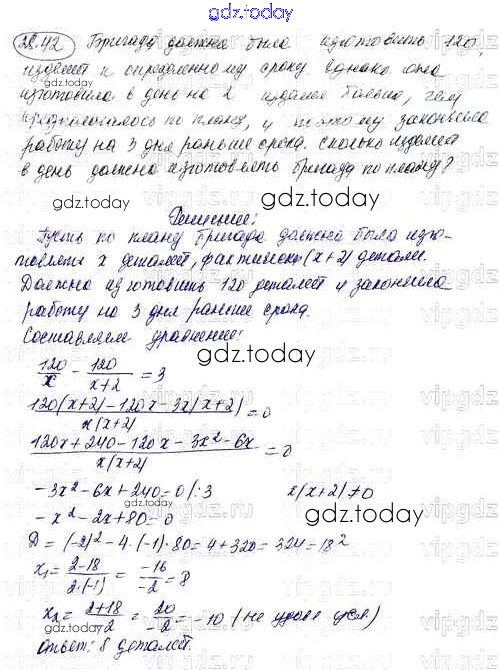 gdz.today
28.42 Бригада должна была изготовить 120
изделий к определенному сроку однако она
изготовила в день на 2 изделия больше, чем
предполагалось по плану, и поэтому закончила
работу на 3 дня раньше срока. Сколько изделий
в день должна изготовлять бригада по плану?
gdz.today
Решение:
Пусть по плану бригада должна была изго-
товлять x деталей, фактически (x+2) детали.
Должна изготовить 120 деталей и закончила
работу на 3 дня раньше срока.
Составляем уравнение:
gdz.today
120/x - 120/(x+2) = 3
(120(x+2)-120x-3x(x+2))/(x(x+2)) = 0
gdz.today
(120x+240-120x-3x²-6x)/(x(x+2)) = 0
-3x²-6x+240=0 /:3 x(x+2)≠0
gdz.today
-x²-2x+80=0
D = (-2)²-4·(-1)·80=4+320=324=18²
x₁ = (2-18)/(2·(-1)) = -16/-2 = 8
gdz.today
x₂ = (2+18)/-2 = 20/-2 = -10 (не удовл усл)
Ответ: 8 деталей.
gdz.today